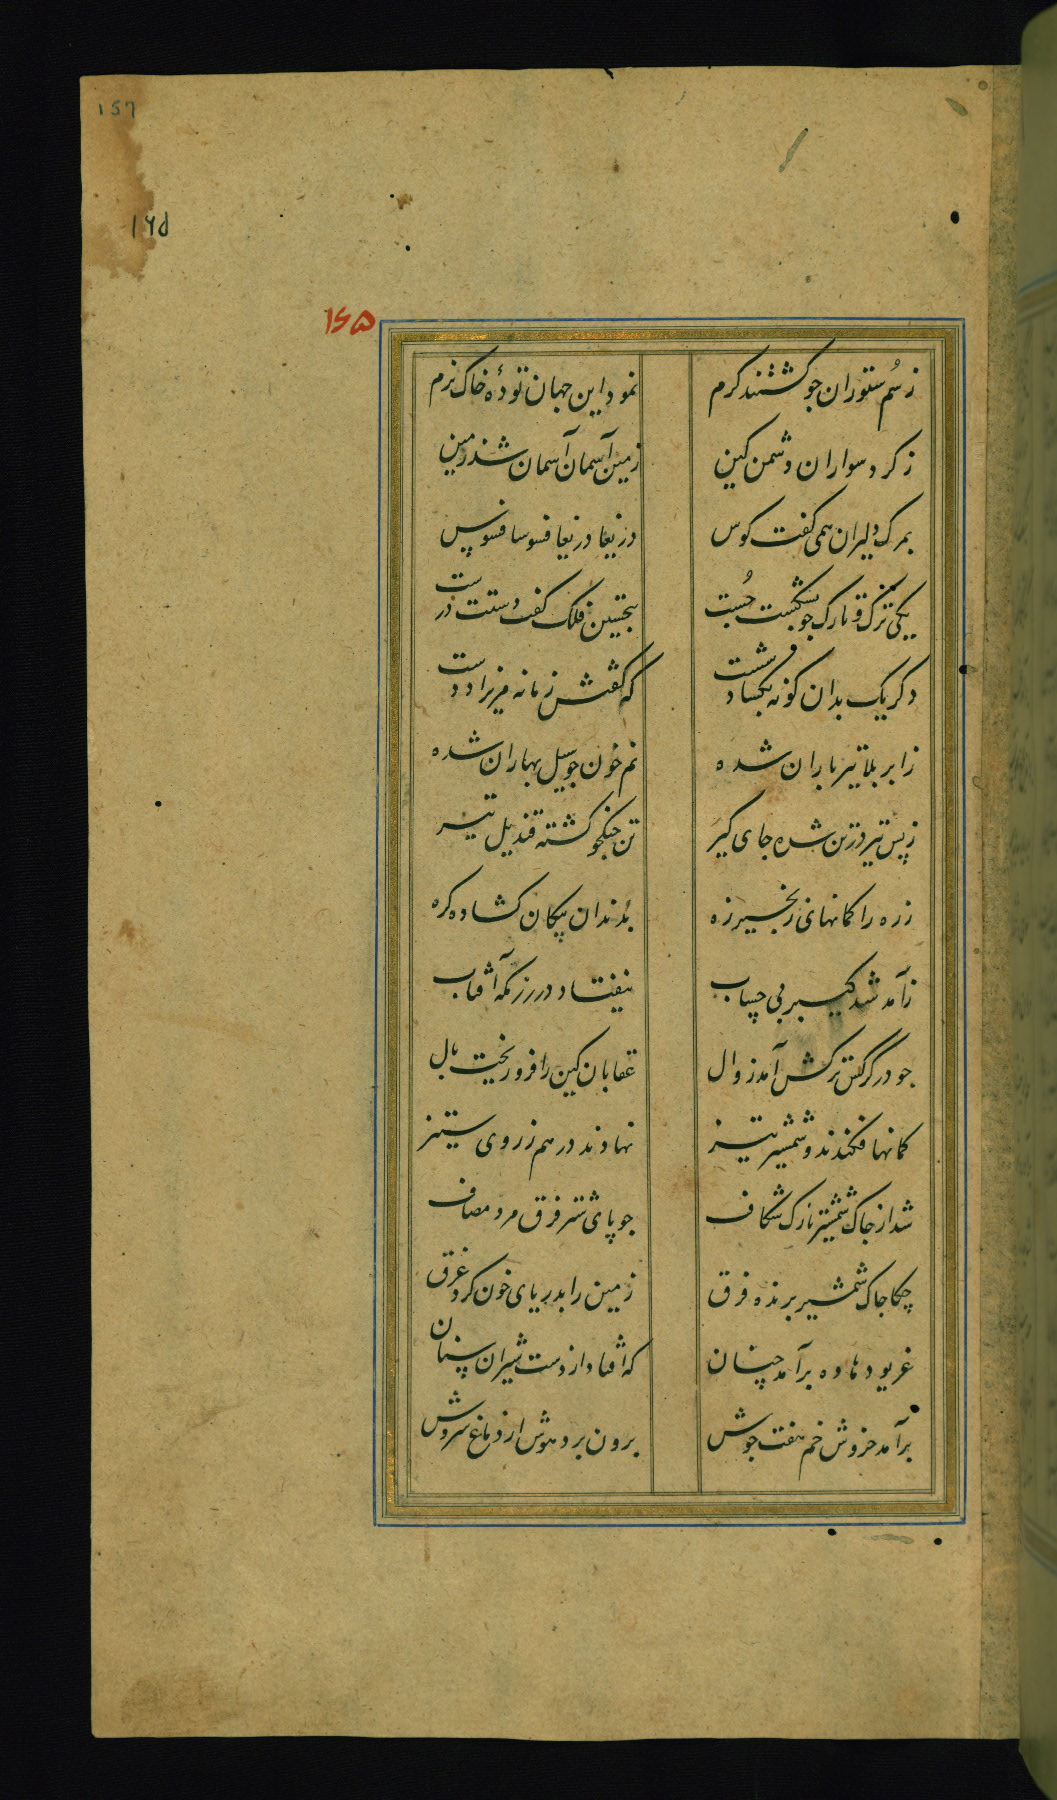 157
۱۶۵
۱۶۵
ز سُم ستوران جو کشتند کرم نمود این جهان تودهٔ خاک نرم
ز کرد سواران دشمن کین زمین آسمان آسمان شد زمین
بمرک دلیران همی کفت کوس دریغا دریغا فسوسا فسوس
یکی ترک و تارک جو بشکست جُست بتحسین فلک کفت دستت درست
دکر یک بدان کونه بکشاد شست که کفتش زمانه مریزاد دست
ز ابر بلا تیر باران شده نم خون جو سیل بهاران شده
ز پس تیر در تن شده جای کیر تن جنکجو کشته قندیل تیر
زره را کمانهای زنجیر زه بدندان پیکان کشاده کره
ز آمد شد کیبر بی حساب نیفتاد در رزمکه آفتاب
جو در کرکس ترکش آمد زوال عقابان کین را فرو ریخت بال
کمانها فکندند و شمشیر تیز نهادند در هم ز روی ستیز
شد از جاک شمشیر تارک شکاف جو پای شتر فرق مرد مصاف
چکاجاک شمشیر برنده فرق زمین را بدریای خون کرد غرق
غریو دهاده برآمد چنان که افتاد از دست شیران سنان
برآمد خروش خم هفت جوش برون برد هوش از دماغ سروش